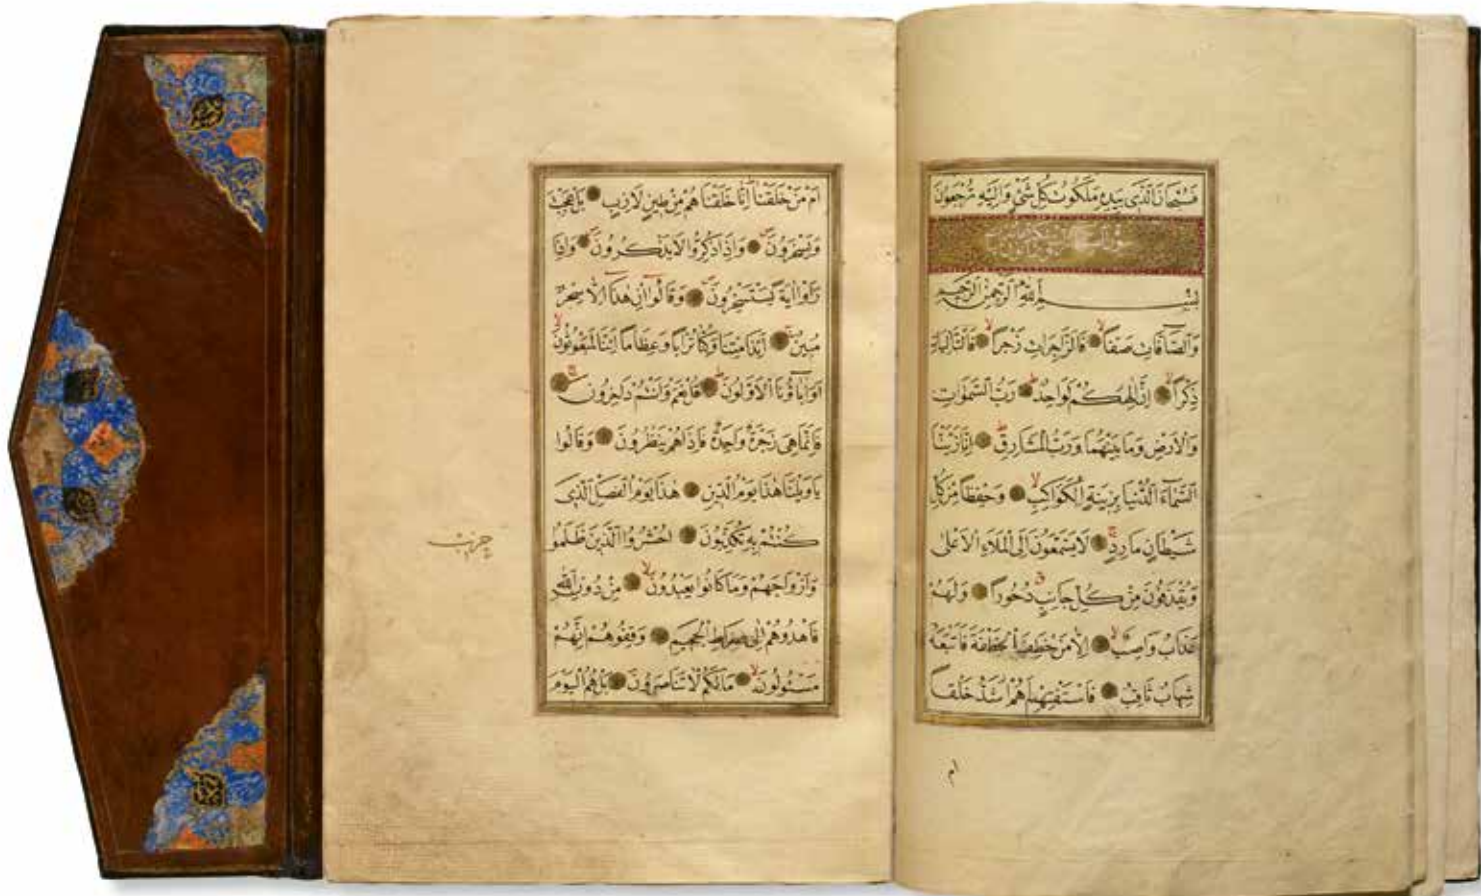 فَسُبْحَانَ الَّذِى بِيَدِهِ مَلَكُوتُ كُلِّ شَىْءٍ وَاِلَيْهِ تُرْجَعُونَ
بِسْمِ اللّٰهِ الرَّحْمٰنِ الرَّحِيمِ
وَالصَّافَّاتِ صَفًّا فَالزَّاجِرَاتِ زَجْرًا فَالتَّالِيَاتِ
ذِكْرًا اِنَّ اِلٰهَكُمْ لَوَاحِدٌ رَبُّ السَّمٰوَاتِ
وَالْاَرْضِ وَمَا بَيْنَهُمَا وَرَبُّ الْمَشَارِقِ اِنَّا زَيَّنَّا
السَّمَاءَ الدُّنْيَا بِزِينَةٍ الْكَوَاكِبِ وَحِفْظًا مِنْ كُلِّ
شَيْطَانٍ مَارِدٍ لَا يَسَّمَّعُونَ اِلَى الْمَلَاِ الْاَعْلٰى
وَيُقْذَفُونَ مِنْ كُلِّ جَانِبٍ دُحُورًا وَلَهُمْ
عَذَابٌ وَاصِبٌ اِلَّا مَنْ خَطِفَ الْخَطْفَةَ فَاَتْبَعَهُ
شِهَابٌ ثَاقِبٌ فَاسْتَفْتِهِمْ اَهُمْ اَشَدُّ خَلْقًا
ام
اَمْ مَنْ خَلَقْنَا اِنَّا خَلَقْنَاهُمْ مِنْ طِينٍ لَازِبٍ بَلْ عَجِبْتَ
وَيَسْخَرُونَ وَاِذَا ذُكِّرُوا لَا يَذْكُرُونَ وَاِذَا
رَاَوْا اٰيَةً يَسْتَسْخِرُونَ وَقَالُوا اِنْ هٰذَا اِلَّا سِحْرٌ
مُبِينٌ اَئِذَا مِتْنَا وَكُنَّا تُرَابًا وَعِظَامًا اَئِنَّا لَمَبْعُوثُونَ
اَوَاٰبَاؤُنَا الْاَوَّلُونَ قُلْ نَعَمْ وَاَنْتُمْ دَاخِرُونَ
فَاِنَّمَا هِىَ زَجْرَةٌ وَاحِدَةٌ فَاِذَا هُمْ يَنْظُرُونَ وَقَالُوا
يَا وَيْلَنَا هٰذَا يَوْمُ الدِّينِ هٰذَا يَوْمُ الْفَصْلِ الَّذِى
كُنْتُمْ بِهِ تُكَذِّبُونَ اُحْشُرُوا الَّذِينَ ظَلَمُوا
وَاَزْوَاجَهُمْ وَمَا كَانُوا يَعْبُدُونَ مِنْ دُونِ اللّٰهِ
فَاهْدُوهُمْ اِلٰى صِرَاطِ الْجَحِيمِ وَقِفُوهُمْ اِنَّهُمْ
مَسْئُولُونَ مَالَكُمْ لَا تَنَاصَرُونَ بَلْ هُمُ الْيَوْمَ
حزب